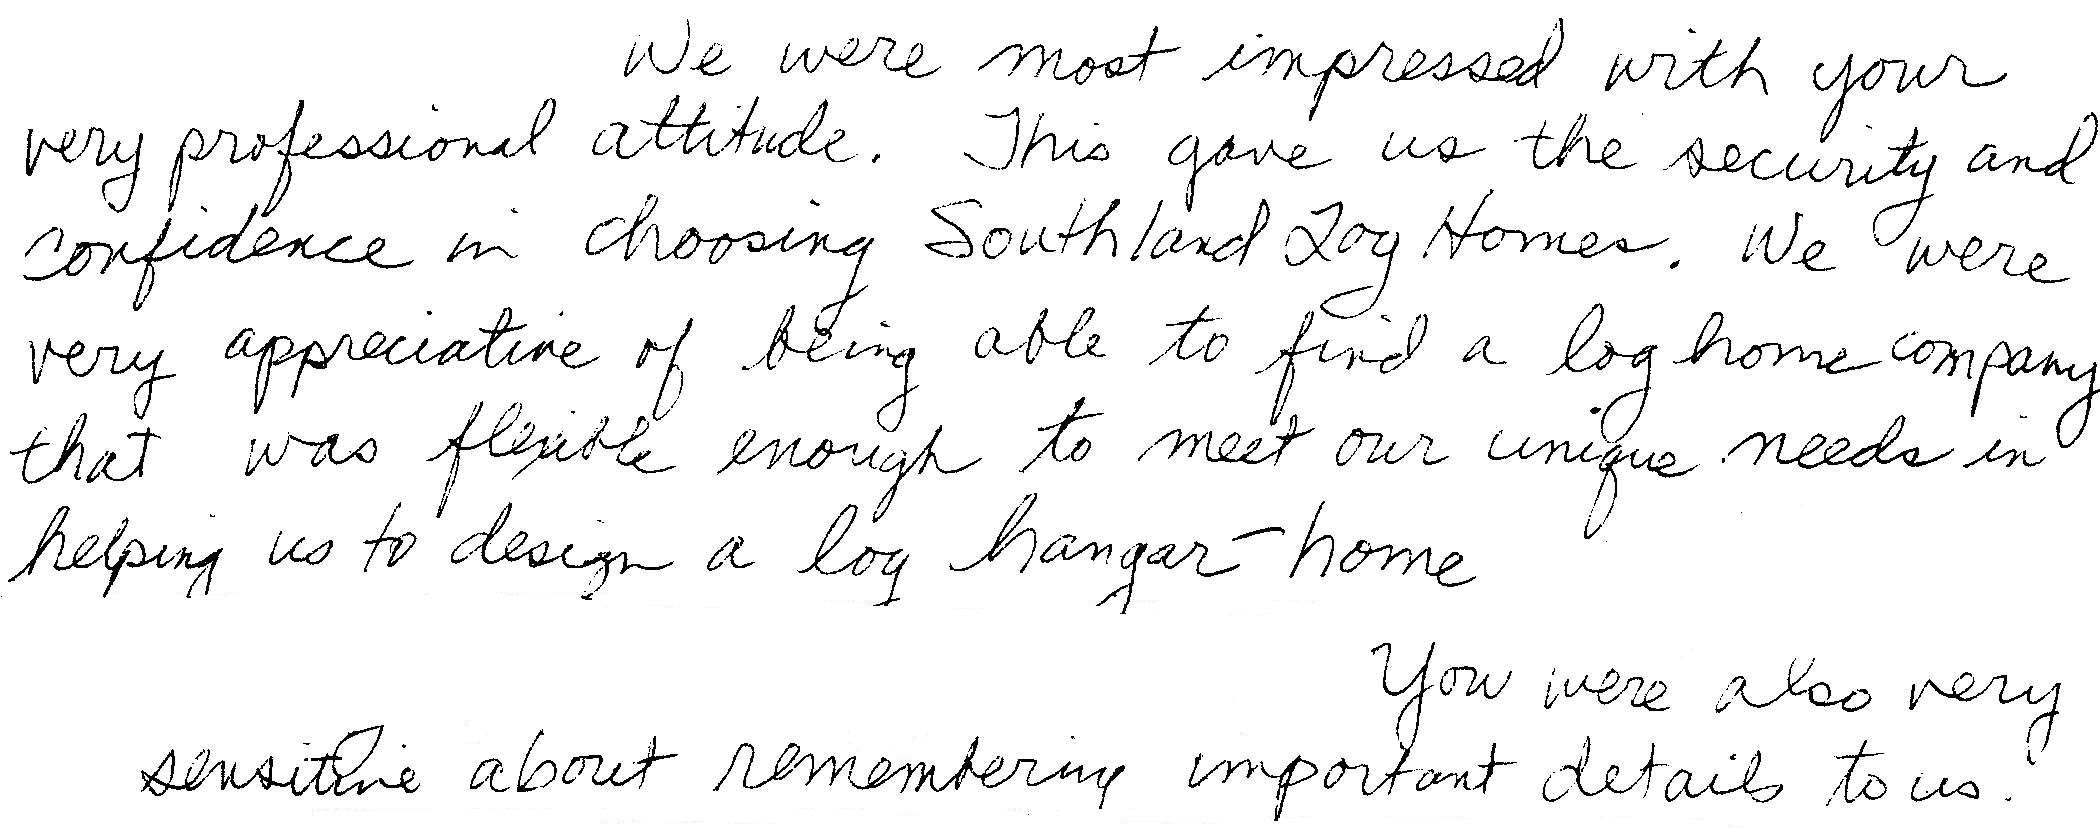 We were most impressed with your
very professional attitude. This gave us the security and
confidence in choosing Southland Log Homes. We were
very appreciative of being able to find a log home company
that was flexible enough to meet our unique needs in
helping us to design a log hangar-home
You were also very
sensitive about remembering important details to us.